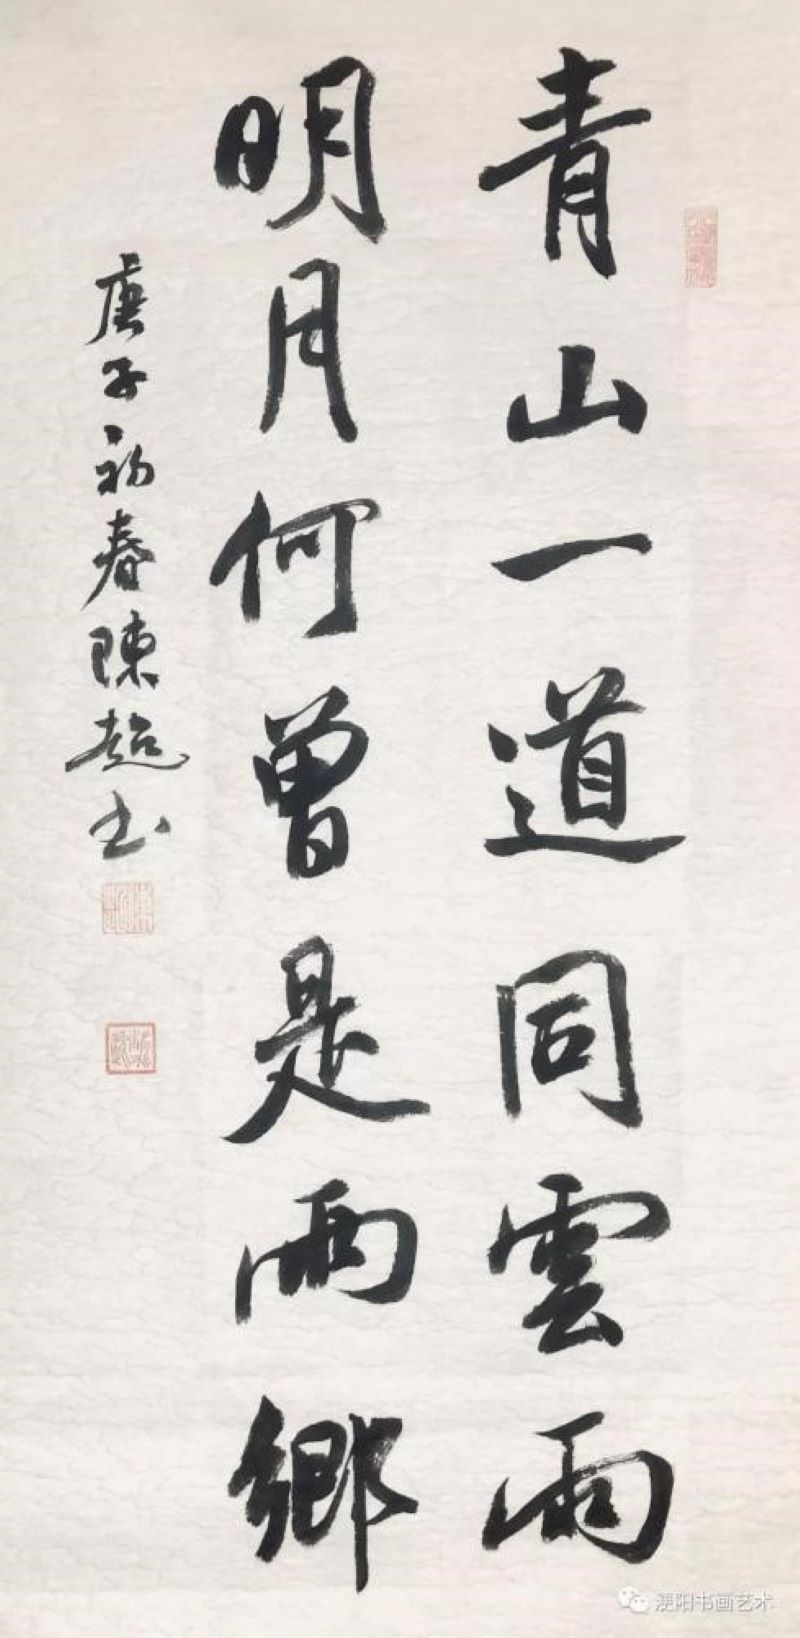 青山一道同雲雨
明月何曾是兩鄉
庚子初春陳超书
梗阳书画艺术